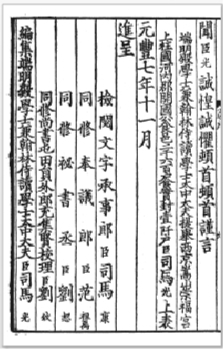 聞臣光誠惶誠懼頓首頓首謹言
端明殿學士兼翰林侍讀學士太中大夫提舉西京嵩山崇福宮
上柱國河內郡開國公食邑二千六百戶食實封壹阡戶臣司馬光上表
元豐七年十一月
進呈
檢閱文字承事郎臣司馬康
同修奉議郎臣范祖禹
同修秘書丞臣劉恕
同修尚書屯田員外郎充集賢校理臣劉攽
編集端明殿學士兼翰林侍讀學士太中大夫臣司馬光